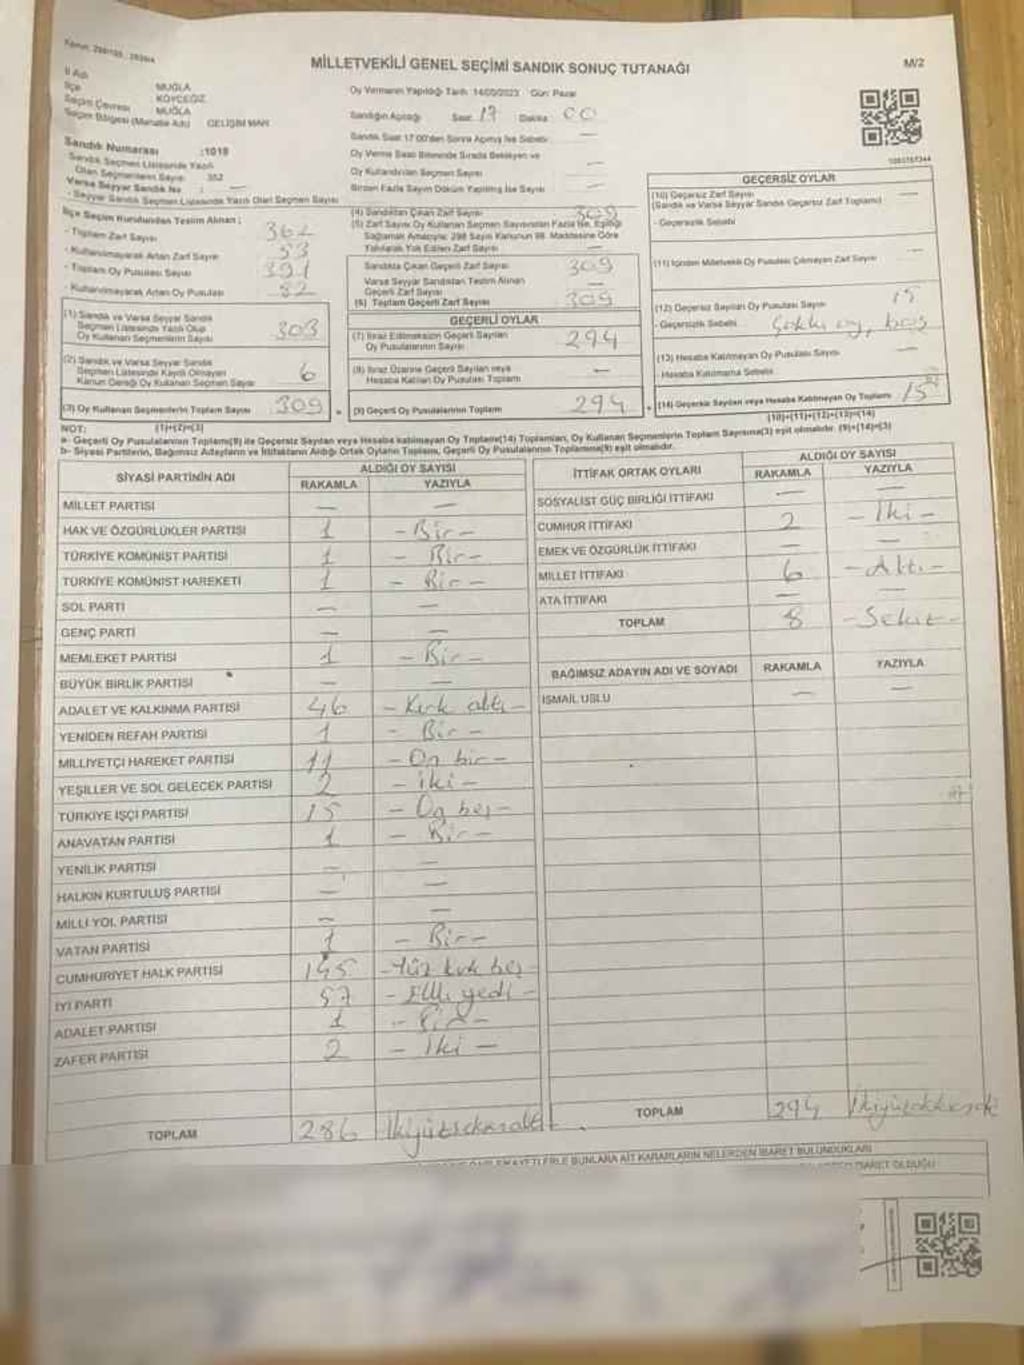 MİLLETVEKİLİ GENEL SEÇİMİ SANDIK SONUÇ TUTANAĞI
M/2
İl Adı MUĞLA
İlçe KÖYCEĞİZ
Seçim Çevresi MUĞLA
Seçim Bölgesi (Mahalle Adı) GELİŞİM MAH.
Oy Vermenin Yapıldığı Tarih: 14/05/2023 Gün: Pazar
Sandığın Açılacağı Saat: 17 Dakika 00
Sandık Saat 17:00'den Sonra Açılmış İse Sebebi: —
Oy Verme Saati Bitiminde Sırada Bekleyen ve
Oy Kullandırılan Seçmen Sayısı —
Birden Fazla Sayım Döküm Yapılmış İse Sayısı —
Sandık Numarası :1019
- Sandık Seçmen Listesinde Yazılı
Olan Seçmenlerin Sayısı 352
Varsa Seyyar Sandık No : —
- Seyyar Sandık Seçmen Listesinde Yazılı Olan Seçmen Sayısı
İlçe Seçim Kurulundan Teslim Alınan ;
- Toplam Zarf Sayısı 362
- Kullanılmayarak Artan Zarf Sayısı 53
- Toplam Oy Pusulası Sayısı 391
- Kullanılmayarak Artan Oy Pusulası 82
(1) Sandık ve Varsa Seyyar Sandık
Seçmen Listesinde Yazılı Olup
Oy Kullanan Seçmenlerin Sayısı 303
(2) Sandık ve Varsa Seyyar Sandık
Seçmen Listesinde Kaydı Olmayan
Kanun Gereği Oy Kullanan Seçmen Sayısı 6
(3) Oy Kullanan Seçmenlerin Toplam Sayısı 309 =
(1)+(2)=(3)
(4) Sandıktan Çıkan Zarf Sayısı 309
(5) Zarf Sayısı Oy Kullanan Seçmen Sayısından Fazla İse, Eşitliği
Sağlamak Amacıyla; 298 Sayılı Kanunun 98. Maddesine Göre
Yakılarak Yok Edilen Zarf Sayısı —
Sandıkta Çıkan Geçerli Zarf Sayısı 309
Varsa Seyyar Sandıktan Teslim Alınan
Geçerli Zarf Sayısı —
(6) Toplam Geçerli Zarf Sayısı 309
GEÇERLİ OYLAR
(7) İtiraz Edilmeksizin Geçerli Sayılan
Oy Pusulalarının Sayısı 294
(8) İtiraz Üzerine Geçerli Sayılan veya
Hesaba Katılan Oy Pusulaları Toplamı —
(9) Geçerli Oy Pusulalarının Toplamı 294 +
GEÇERSİZ OYLAR
(10) Geçersiz Zarf Sayısı —
(Sandık ve Varsa Seyyar Sandık Geçersiz Zarf Toplamı)
- Geçersizlik Sebebi
(11) İçinden Milletvekili Oy Pusulası Çıkmayan Zarf Sayısı —
(12) Geçersiz Sayılan Oy Pusulası Sayısı 15
- Geçersizlik Sebebi
(13) Hesaba Katılmayan Oy Pusulası Sayısı —
- Hesaba Katılmama Sebebi
(14) Geçersiz Sayılan veya Hesaba Katılmayan Oy Toplamı 15
(10)+(11)+(12)+(13)=(14)
NOT:
a- Geçerli Oy Pusulalarının Toplamı(9) ile Geçersiz Sayılan veya Hesaba katılmayan Oy Toplamı(14) Toplamları, Oy Kullanan Seçmenlerin Toplam Sayısına(3) eşit olmalıdır. (9)+(14)=(3)
b- Siyasi Partilerin, Bağımsız Adayların ve İttifakların Aldığı Ortak Oyların Toplamı, Geçerli Oy Pusulalarının Toplamına(9) eşit olmalıdır.
SİYASİ PARTİNİN ADI ALDIĞI OY SAYISI
RAKAMLA YAZIYLA
MİLLET PARTİSİ — —
HAK VE ÖZGÜRLÜKLER PARTİSİ 1 - Bir -
TÜRKİYE KOMÜNİST PARTİSİ 1 - Bir -
TÜRKİYE KOMÜNİST HAREKETİ 1 - Bir -
SOL PARTİ — —
GENÇ PARTİ — —
MEMLEKET PARTİSİ 1 - Bir -
BÜYÜK BİRLİK PARTİSİ — —
ADALET VE KALKINMA PARTİSİ 46 - Kırk altı -
YENİDEN REFAH PARTİSİ 1 - Bir -
MİLLİYETÇİ HAREKET PARTİSİ 11 - On bir -
YEŞİLLER VE SOL GELECEK PARTİSİ 2 - iki -
TÜRKİYE İŞÇİ PARTİSİ 15 - On beş -
ANAVATAN PARTİSİ 1 - Bir -
YENİLİK PARTİSİ — —
HALKIN KURTULUŞ PARTİSİ — —
MİLLİ YOL PARTİSİ — —
VATAN PARTİSİ 1 - Bir -
CUMHURİYET HALK PARTİSİ 145 - Yüz kırk beş -
İYİ PARTİ 57 - Elli yedi -
ADALET PARTİSİ 1 - Bir -
ZAFER PARTİSİ 2 - İki -
TOPLAM 286 İkiyüzseksenaltı
İTTİFAK ORTAK OYLARI ALDIĞI OY SAYISI
RAKAMLA YAZIYLA
SOSYALİST GÜÇ BİRLİĞİ İTTİFAKI — —
CUMHUR İTTİFAKI 2 - İki -
EMEK VE ÖZGÜRLÜK İTTİFAKI — —
MİLLET İTTİFAKI 6 - Altı -
ATA İTTİFAKI — —
TOPLAM 8 - Sekiz -
BAĞIMSIZ ADAYIN ADI VE SOYADI RAKAMLA YAZIYLA
İSMAİL USLU — —
TOPLAM 294
BUNLARA AİT KARARLARIN NELERDEN İBARET BULUNDUKLARI